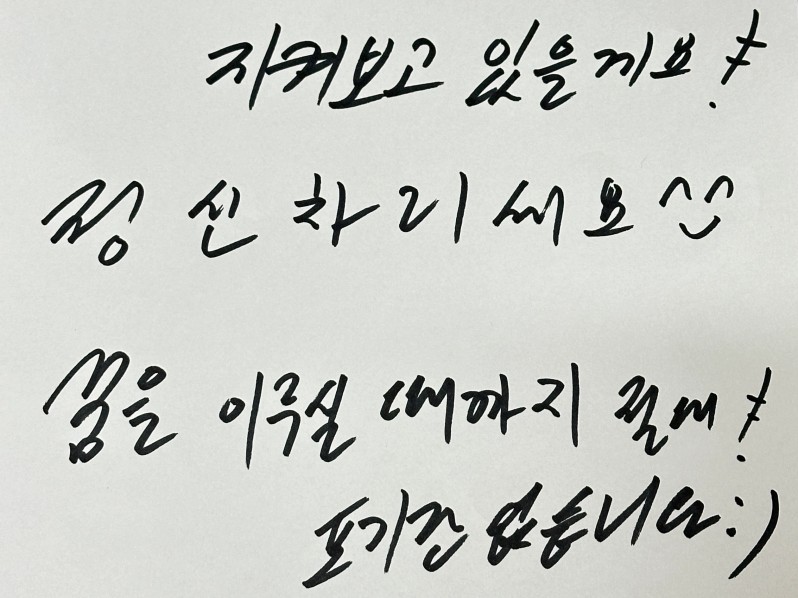 지켜보고 있을게요!
정신차리세요^^
꿈을 이루실 때까지 절대!
포기란 없습니다:)